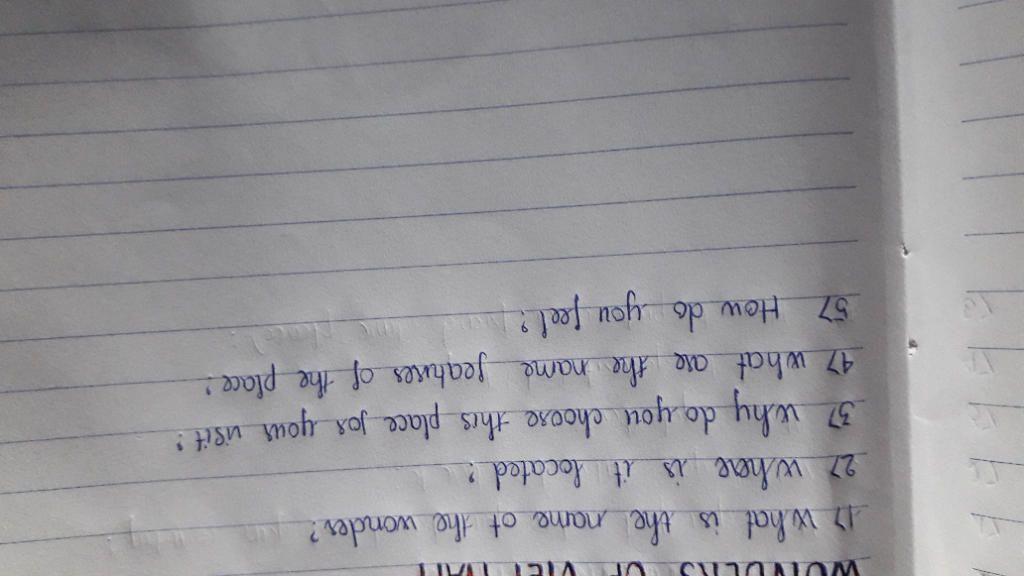 WONDERS OF VIET NAM
1> What is the name of the wonder?
2> Where is it located?
3> Why do you choose this place for your visit?
4> What are the name features of the place?
5> How do you feel?